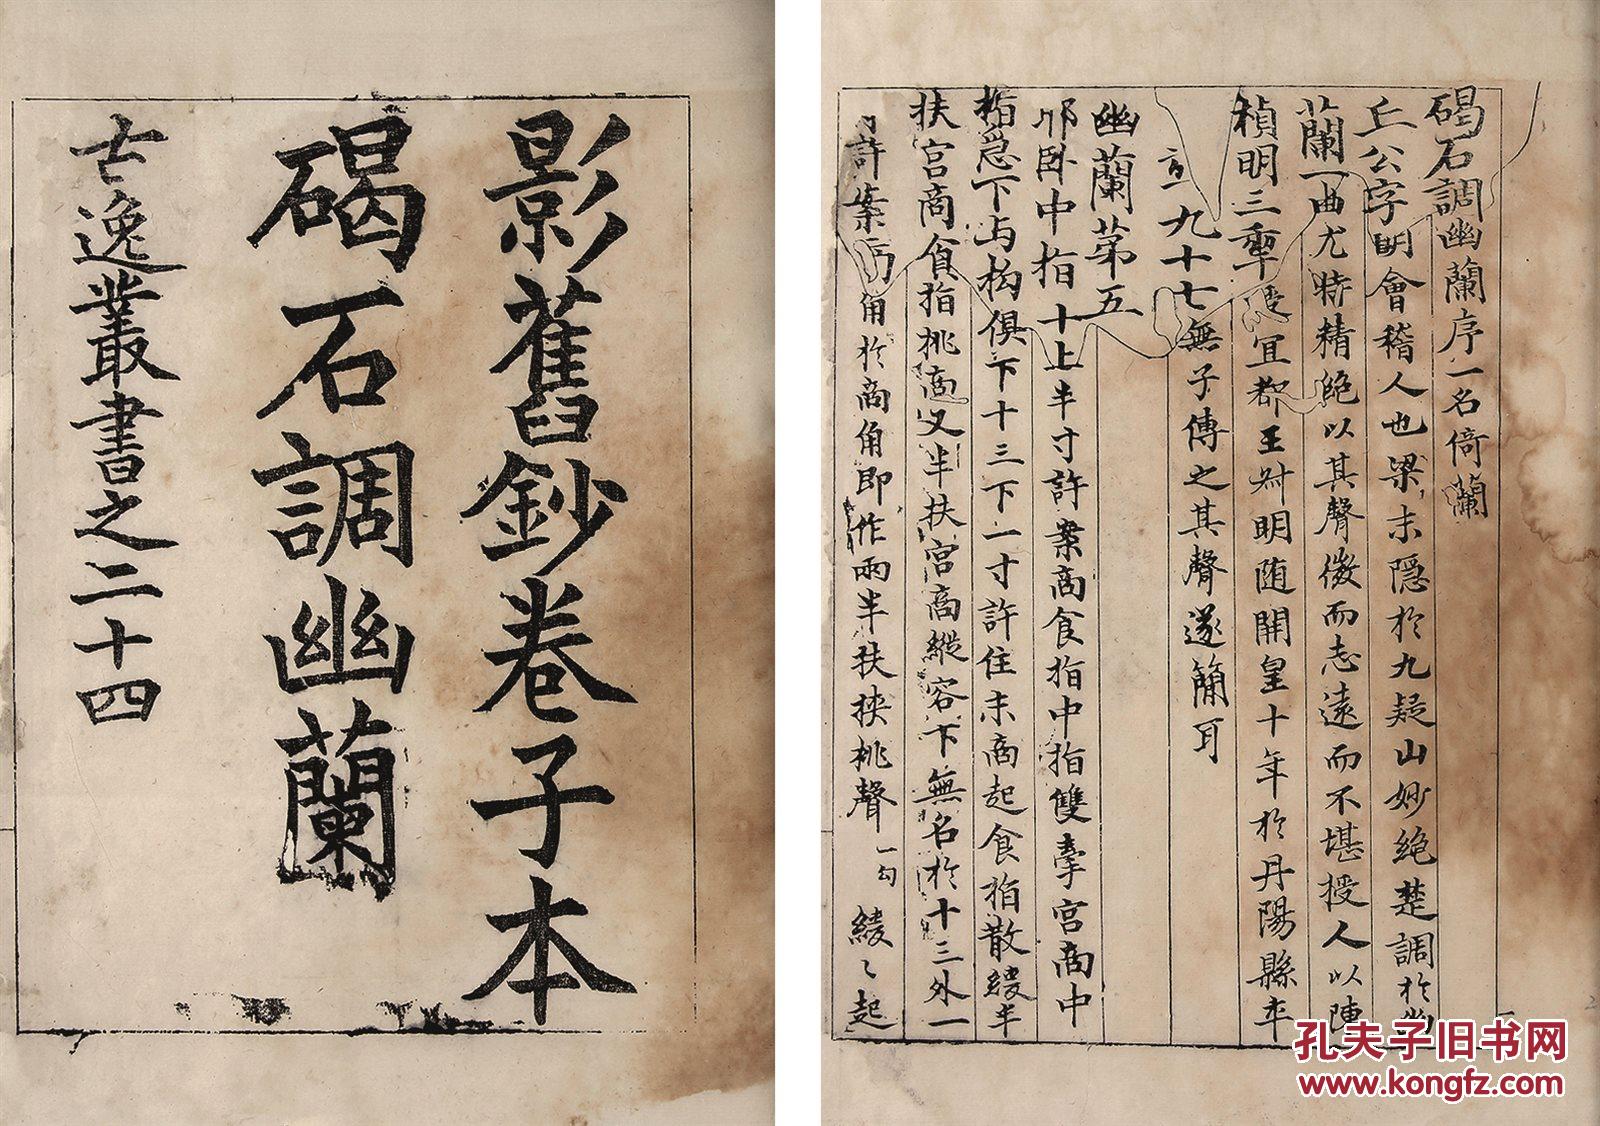 影舊鈔卷子本
碣石調幽蘭
古逸叢書之二十四
碣石調幽蘭序一名倚蘭
丘公字明會稽人也梁末隠於九疑山妙絶楚調於幽
蘭一曲尤特精絶以其聲微而志遠而不堪授人以陳
禎明三年授宜都王叔明随開皇十年於丹陽縣卒
九十七無子傳之其聲遂簡耳
幽蘭第五
耶卧中指十上半寸許案商食指中指雙牽宮商中
指急下与构俱下十三下一寸許住末商起食指散緩半
扶宮商食指挑商又半扶宮商縱容下無名於十三外一
寸許案商角於商角即作兩半扶挾挑聲一句緩〻起
孔夫子旧书网
www.kongfz.com